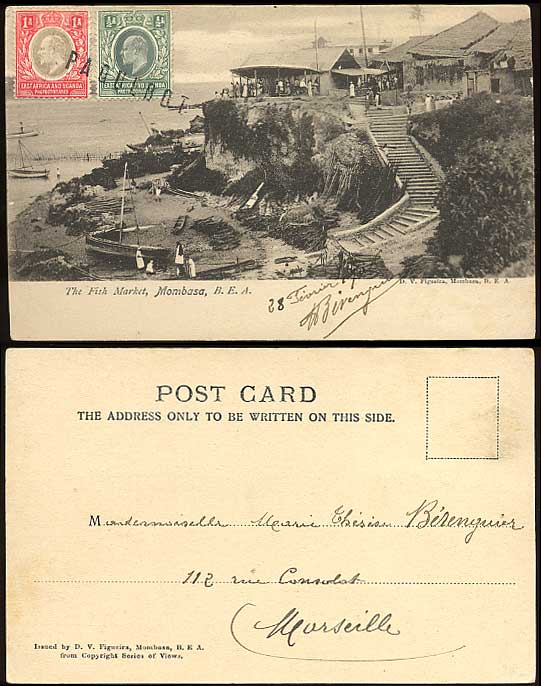 1A 1A
EAST AFRICA AND UGANDA
PROTECTORATES
½A ½A
EAST AFRICA AND UGANDA
PROTECTORATES
PAQUEBOT
The Fish Market, Mombasa, B. E. A.
D. V. Figueira, Mombasa, B. E. A.
28 Février
Bérenguier
POST CARD
THE ADDRESS ONLY TO BE WRITTEN ON THIS SIDE.
Mademoiselle Marie Thérèse Bérenguier
112 rue Consolat
Marseille
Issued by D. V. Figueira, Mombasa, B. E. A.
from Copyright Series of Views.